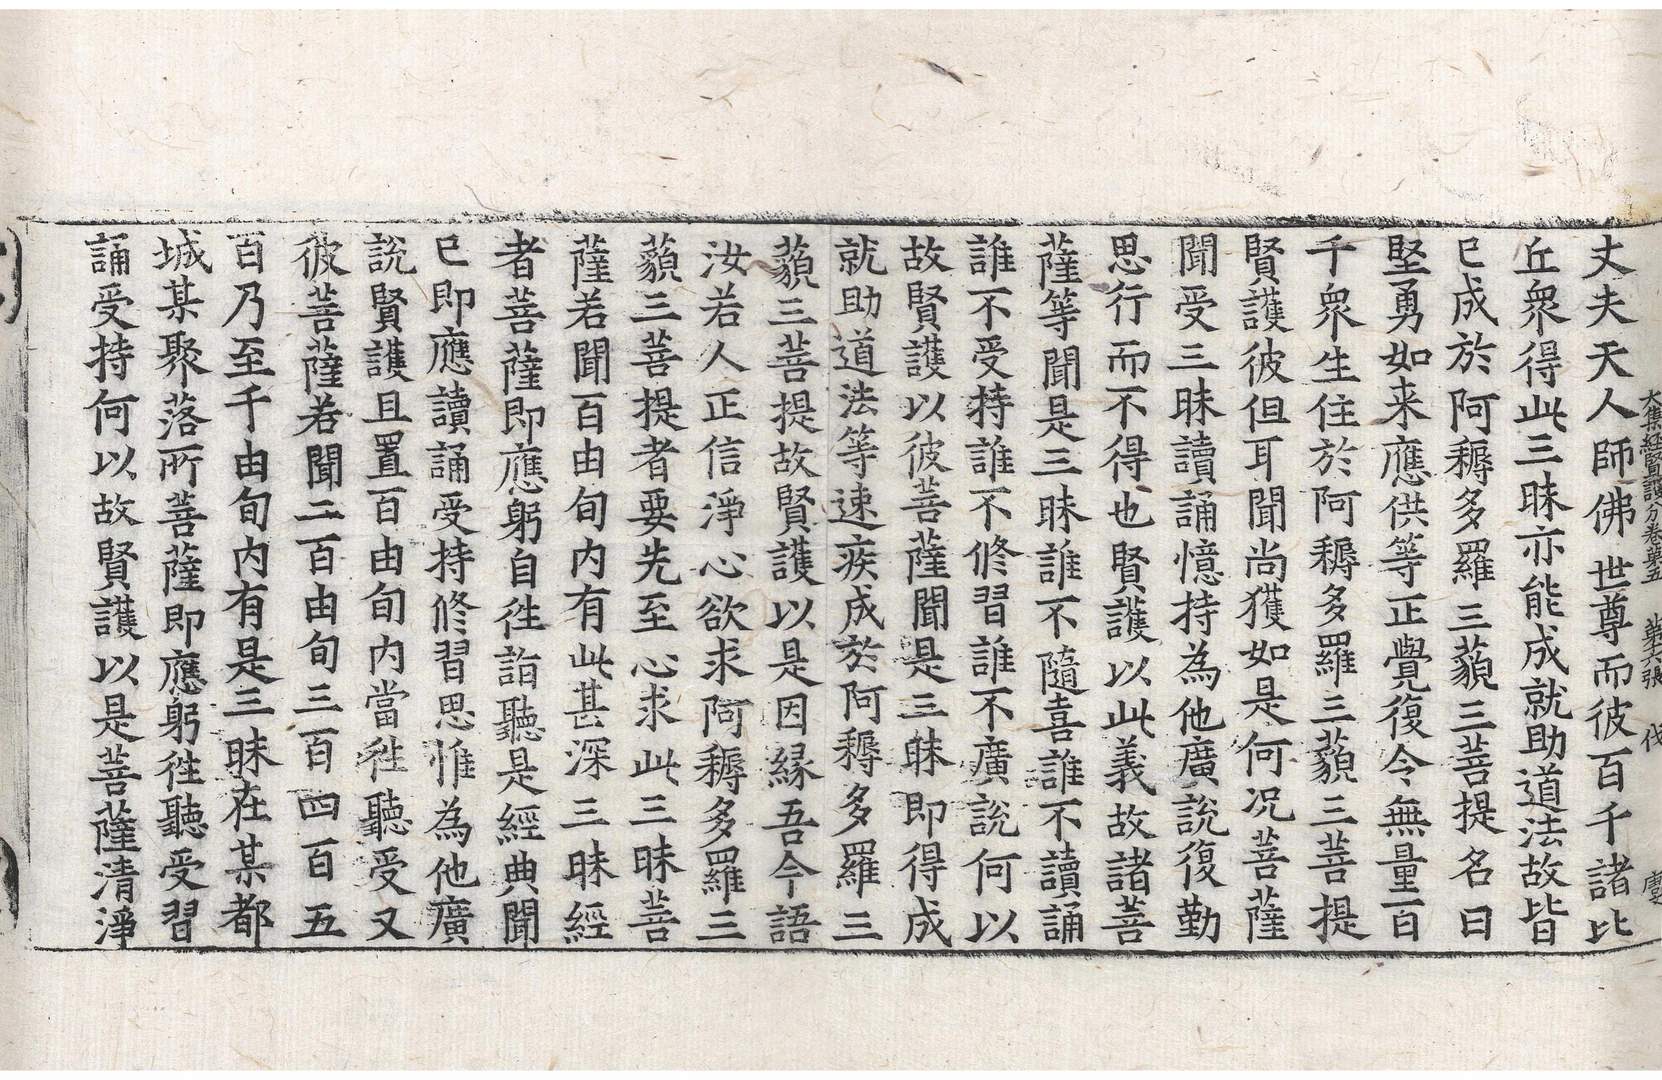 大集經賢護分卷第五　第六張　伐
丈夫天人師佛世尊而彼百千諸比
丘衆得此三昧亦能成就助道法故皆
已成於阿耨多羅三藐三菩提名曰
堅勇如来應供等正覺復令無量百
千衆生住於阿耨多羅三藐三菩提
賢護彼但耳聞尚獲如是何况菩薩
聞受三昧讀誦憶持為他廣說復勤
思行而不得也賢護以此義故諸菩
薩等聞是三昧誰不隨喜誰不讀誦
誰不受持誰不修習誰不廣說何以
故賢護以彼菩薩聞是三昧即得成
就助道法等速疾成於阿耨多羅三
藐三菩提故賢護以是因緣吾今語
汝若人正信淨心欲求阿耨多羅三
藐三菩提者要先至心求此三昧菩
薩若聞百由旬内有此甚深三昧經
者菩薩即應躬自往詣聽是經典聞
已即應讀誦受持修習思惟為他廣
說賢護且置百由旬内當往聽受又
彼菩薩若聞二百由旬三百四百五
百乃至千由旬内有是三昧在某都
城某聚落所菩薩即應躬往聽受習
誦受持何以故賢護以是菩薩清淨